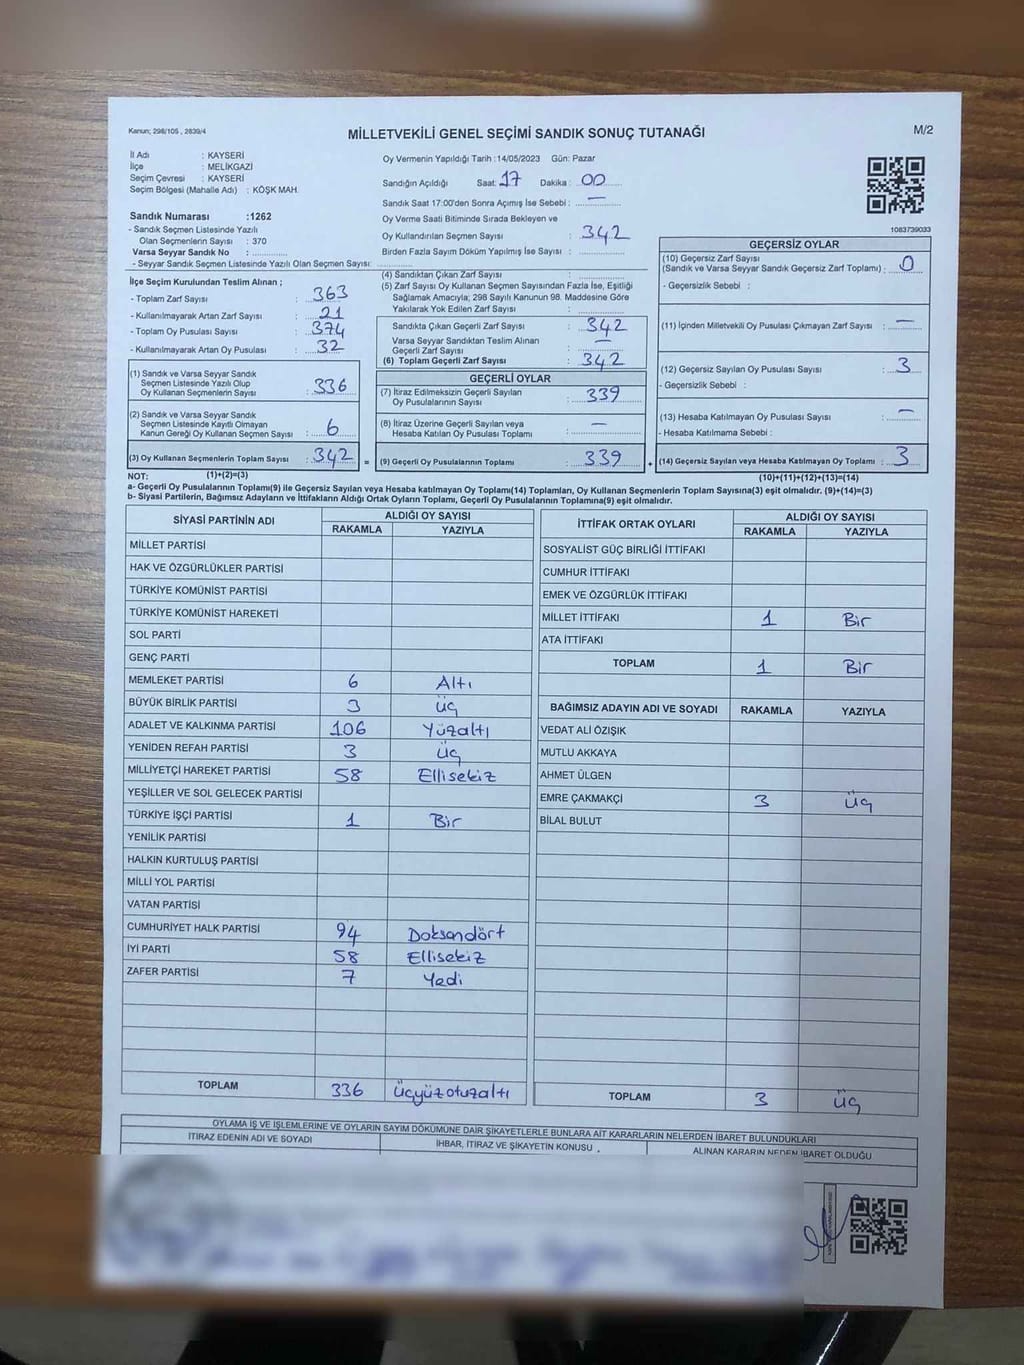 Kanun; 298/105 , 2839/4
MİLLETVEKİLİ GENEL SEÇİMİ SANDIK SONUÇ TUTANAĞI
M/2
İl Adı : KAYSERİ
İlçe : MELİKGAZİ
Seçim Çevresi : KAYSERİ
Seçim Bölgesi (Mahalle Adı) : KÖŞK MAH.
Sandık Numarası :1262
- Sandık Seçmen Listesinde Yazılı
Olan Seçmenlerin Sayısı : 370
Varsa Seyyar Sandık No :
- Seyyar Sandık Seçmen Listesinde Yazılı Olan Seçmen Sayısı:
Oy Vermenin Yapıldığı Tarih :14/05/2023 Gün: Pazar
Sandığın Açıldığı Saat: 17 Dakika : 00
Sandık Saat 17:00'den Sonra Açımış İse Sebebi : —
Oy Verme Saati Bitiminde Sırada Bekleyen ve
Oy Kullandırılan Seçmen Sayısı : 342
Birden Fazla Sayım Döküm Yapılmış İse Sayısı :
1083739033
İlçe Seçim Kurulundan Teslim Alınan ;
- Toplam Zarf Sayısı : 363
- Kullanılmayarak Artan Zarf Sayısı : 21
- Toplam Oy Pusulası Sayısı : 374
- Kullanılmayarak Artan Oy Pusulası : 32
(1) Sandık ve Varsa Seyyar Sandık
Seçmen Listesinde Yazılı Olup
Oy Kullanan Seçmenlerin Sayısı : 336
(2) Sandık ve Varsa Seyyar Sandık
Seçmen Listesinde Kayıtlı Olmayan
Kanun Gereği Oy Kullanan Seçmen Sayısı : 6
(3) Oy Kullanan Seçmenlerin Toplam Sayısı : 342 =
(1)+(2)=(3)
(4) Sandıktan Çıkan Zarf Sayısı :
(5) Zarf Sayısı Oy Kullanan Seçmen Sayısından Fazla İse, Eşitliği
Sağlamak Amacıyla; 298 Sayılı Kanunun 98. Maddesine Göre
Yakılarak Yok Edilen Zarf Sayısı :
Sandıkta Çıkan Geçerli Zarf Sayısı : 342
Varsa Seyyar Sandıktan Teslim Alınan
Geçerli Zarf Sayısı : —
(6) Toplam Geçerli Zarf Sayısı : 342
GEÇERLİ OYLAR
(7) İtiraz Edilmeksizin Geçerli Sayılan
Oy Pusulalarının Sayısı : 339
(8) İtiraz Üzerine Geçerli Sayılan veya
Hesaba Katılan Oy Pusulası Toplamı : —
(9) Geçerli Oy Pusulalarının Toplamı : 339 +
GEÇERSİZ OYLAR
(10) Geçersiz Zarf Sayısı
(Sandık ve Varsa Seyyar Sandık Geçersiz Zarf Toplamı) : 0
- Geçersizlik Sebebi :
(11) İçinden Milletvekili Oy Pusulası Çıkmayan Zarf Sayısı : —
(12) Geçersiz Sayılan Oy Pusulası Sayısı : 3
- Geçersizlik Sebebi :
(13) Hesaba Katılmayan Oy Pusulası Sayısı : —
- Hesaba Katılmama Sebebi :
(14) Geçersiz Sayılan veya Hesaba Katılmayan Oy Toplamı : 3
(10)+(11)+(12)+(13)=(14)
NOT:
a- Geçerli Oy Pusulalarının Toplamı(9) ile Geçersiz Sayılan veya Hesaba katılmayan Oy Toplamı(14) Toplamları, Oy Kullanan Seçmenlerin Toplam Sayısına(3) eşit olmalıdır. (9)+(14)=(3)
b- Siyasi Partilerin, Bağımsız Adayların ve İttifakların Aldığı Ortak Oyların Toplamı, Geçerli Oy Pusulalarının Toplamına(9) eşit olmalıdır.
SİYASİ PARTİNİN ADI ALDIĞI OY SAYISI
RAKAMLA YAZIYLA
MİLLET PARTİSİ
HAK VE ÖZGÜRLÜKLER PARTİSİ
TÜRKİYE KOMÜNİST PARTİSİ
TÜRKİYE KOMÜNİST HAREKETİ
SOL PARTİ
GENÇ PARTİ
MEMLEKET PARTİSİ 6 Altı
BÜYÜK BİRLİK PARTİSİ 3 Üç
ADALET VE KALKINMA PARTİSİ 106 Yüzaltı
YENİDEN REFAH PARTİSİ 3 Üç
MİLLİYETÇİ HAREKET PARTİSİ 58 Ellisekiz
YEŞİLLER VE SOL GELECEK PARTİSİ
TÜRKİYE İŞÇİ PARTİSİ 1 Bir
YENİLİK PARTİSİ
HALKIN KURTULUŞ PARTİSİ
MİLLİ YOL PARTİSİ
VATAN PARTİSİ
CUMHURİYET HALK PARTİSİ 94 Doksandört
İYİ PARTİ 58 Ellisekiz
ZAFER PARTİSİ 7 Yedi
TOPLAM 336 Üçyüzotuzaltı
İTTİFAK ORTAK OYLARI ALDIĞI OY SAYISI
RAKAMLA YAZIYLA
SOSYALİST GÜÇ BİRLİĞİ İTTİFAKI
CUMHUR İTTİFAKI
EMEK VE ÖZGÜRLÜK İTTİFAKI
MİLLET İTTİFAKI 1 Bir
ATA İTTİFAKI
TOPLAM 1 Bir
BAĞIMSIZ ADAYIN ADI VE SOYADI RAKAMLA YAZIYLA
VEDAT ALİ ÖZIŞIK
MUTLU AKKAYA
AHMET ÜLGEN
EMRE ÇAKMAKÇİ 3 Üç
BİLAL BULUT
TOPLAM 3 Üç
OYLAMA İŞ VE İŞLEMLERİNE VE OYLARIN SAYIM DÖKÜMÜNE DAİR ŞİKAYETLERLE BUNLARA AİT KARARLARIN NELERDEN İBARET BULUNDUKLARI
İTİRAZ EDENİN ADI VE SOYADI İHBAR, İTİRAZ VE ŞİKAYETİN KONUSU ALINAN KARARIN NEDEN İBARET OLDUĞU